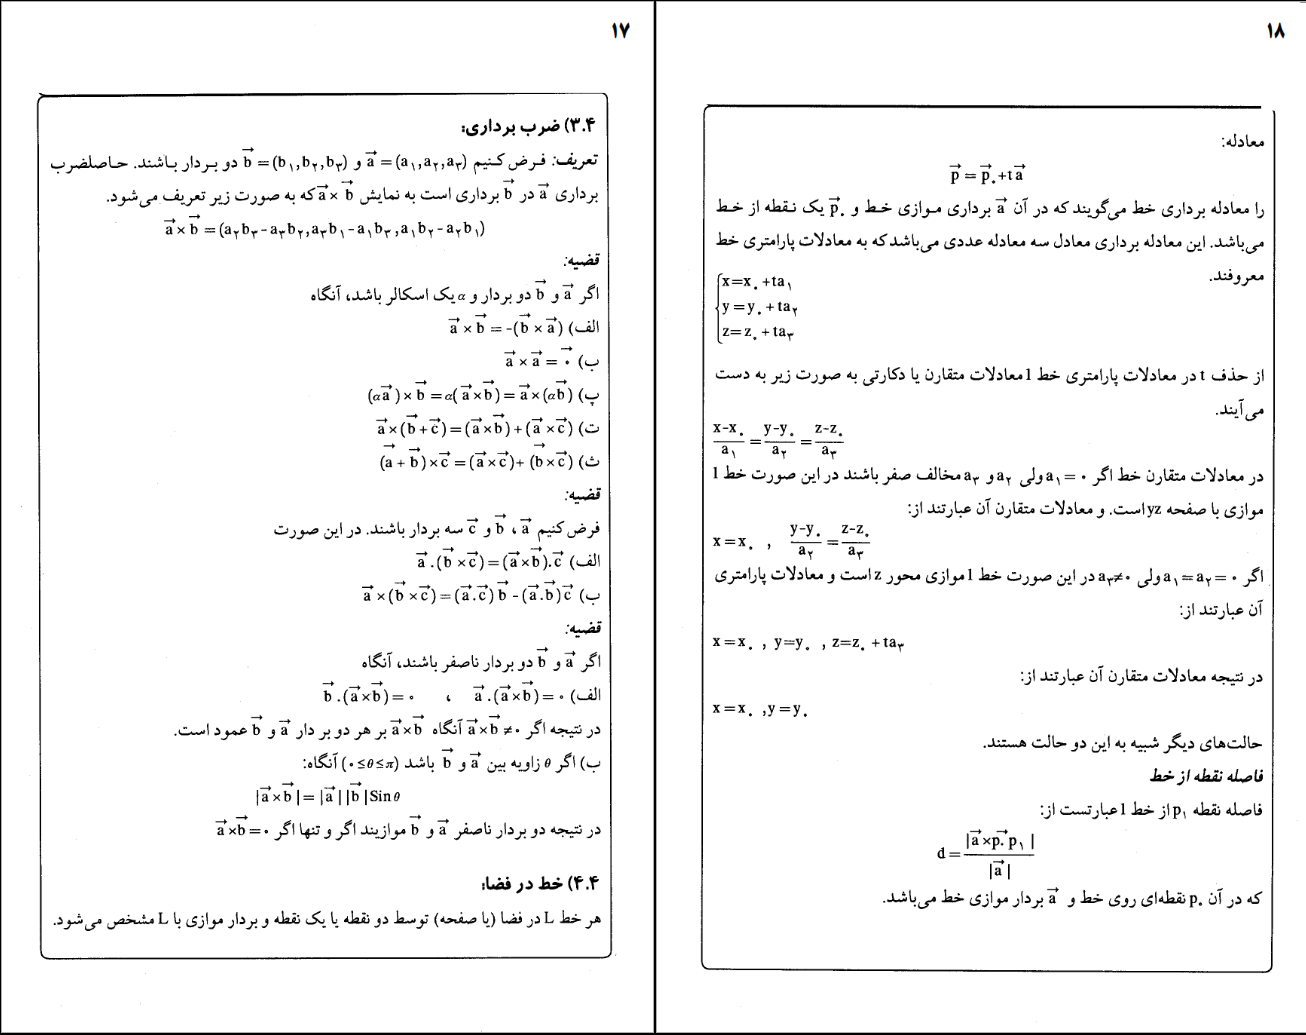 ۱۷
۳.۴) ضرب برداری:
تعریف: فرض کنیم a⃗ = (a₁,a₂,a₃) و b⃗ = (b₁,b₂,b₃) دو بردار باشند. حاصلضرب
برداری a⃗ در b⃗ برداری است به نمایش a⃗ × b⃗ که به صورت زیر تعریف می‌شود.
a⃗ × b⃗ = (a₂b₃ − a₃b₂, a₃b₁ − a₁b₃, a₁b₂ − a₂b₁)
قضیه:
اگر a⃗ و b⃗ دو بردار و α یک اسکالر باشد، آنگاه
الف) a⃗ × b⃗ = -(b⃗ × a⃗)
ب) a⃗ × a⃗ = ۰⃗
پ) (αa⃗) × b⃗ = α(a⃗ × b⃗) = a⃗ × (αb⃗)
ت) a⃗ × (b⃗ + c⃗) = (a⃗ × b⃗) + (a⃗ × c⃗)
ث) (a⃗ + b⃗) × c⃗ = (a⃗ × c⃗) + (b⃗ × c⃗)
قضیه:
فرض کنیم a⃗ ، b⃗ و c⃗ سه بردار باشند. در این صورت
الف) a⃗ . (b⃗ × c⃗) = (a⃗ × b⃗) . c⃗
ب) a⃗ × (b⃗ × c⃗) = (a⃗ . c⃗) b⃗ - (a⃗ . b⃗) c⃗
قضیه:
اگر a⃗ و b⃗ دو بردار ناصفر باشند، آنگاه
الف) a⃗ . (a⃗ × b⃗) = ۰ ، b⃗ . (a⃗ × b⃗) = ۰
در نتیجه اگر a⃗ × b⃗ ≠ ۰ آنگاه a⃗ × b⃗ بر هر دو بردار a⃗ و b⃗ عمود است.
ب) اگر θ زاویه بین a⃗ و b⃗ باشد (۰ ≤ θ ≤ π) آنگاه:
|a⃗ × b⃗| = |a⃗| |b⃗| Sin θ
در نتیجه دو بردار ناصفر a⃗ و b⃗ موازیند اگر و تنها اگر a⃗ × b⃗ = ۰
۴.۴) خط در فضا:
هر خط L در فضا (یا صفحه) توسط دو نقطه یا یک نقطه و بردار موازی با L مشخص می‌شود.
۱۸
معادله:
p⃗ = p⃗₀ + t a⃗
را معادله برداری خط می‌گویند که در آن a⃗ برداری موازی خط و p⃗₀ یک نقطه از خط
می‌باشد. این معادله برداری معادل سه معادله عددی می‌باشد که به معادلات پارامتری خط
معروفند.
x = x₀ + ta₁
y = y₀ + ta₂
z = z₀ + ta₃
از حذف t در معادلات پارامتری خط l معادلات متقارن یا دکارتی به صورت زیر به دست
می‌آیند.
(x-x₀)/a₁ = (y-y₀)/a₂ = (z-z₀)/a₃
در معادلات متقارن خط اگر a₁ = ۰ ولی a₂ و a₃ مخالف صفر باشند در این صورت خط l
موازی با صفحه yz است. و معادلات متقارن آن عبارتند از:
x = x₀ , (y-y₀)/a₂ = (z-z₀)/a₃
اگر a₁ = a₂ = ۰ ولی a₃ ≠ ۰ در این صورت خط l موازی محور z است و معادلات پارامتری
آن عبارتند از:
x = x₀ , y = y₀ , z = z₀ + ta₃
در نتیجه معادلات متقارن آن عبارتند از:
x = x₀ , y = y₀
حالت‌های دیگر شبیه به این دو حالت هستند.
فاصله نقطه از خط
فاصله نقطه p₁ از خط l عبارتست از:
d = |a⃗ × p₀p₁⃗| / |a⃗|
که در آن p₀ نقطه‌ای روی خط و a⃗ بردار موازی خط می‌باشد.